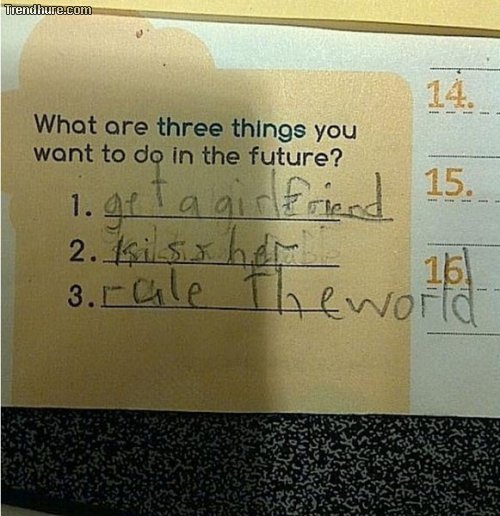 Trendhure.com
What are three things you
want to do in the future?
1. get a girlfriend
2. kiss her
3. rule the world
14.
15.
16.